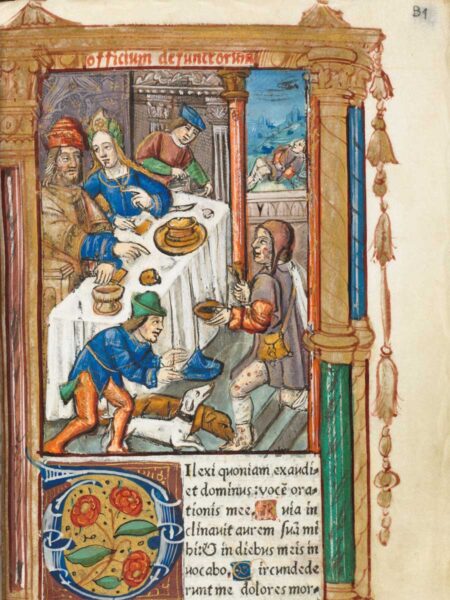 officium defunctorum
DIlexi quoniam, exaudi
et dominus: vocẽ ora-
tionis mee. Quia in
clinavit aurem suã mi
hi: & in diebus meis in
vocabo, Circundede
runt me dolores mor-